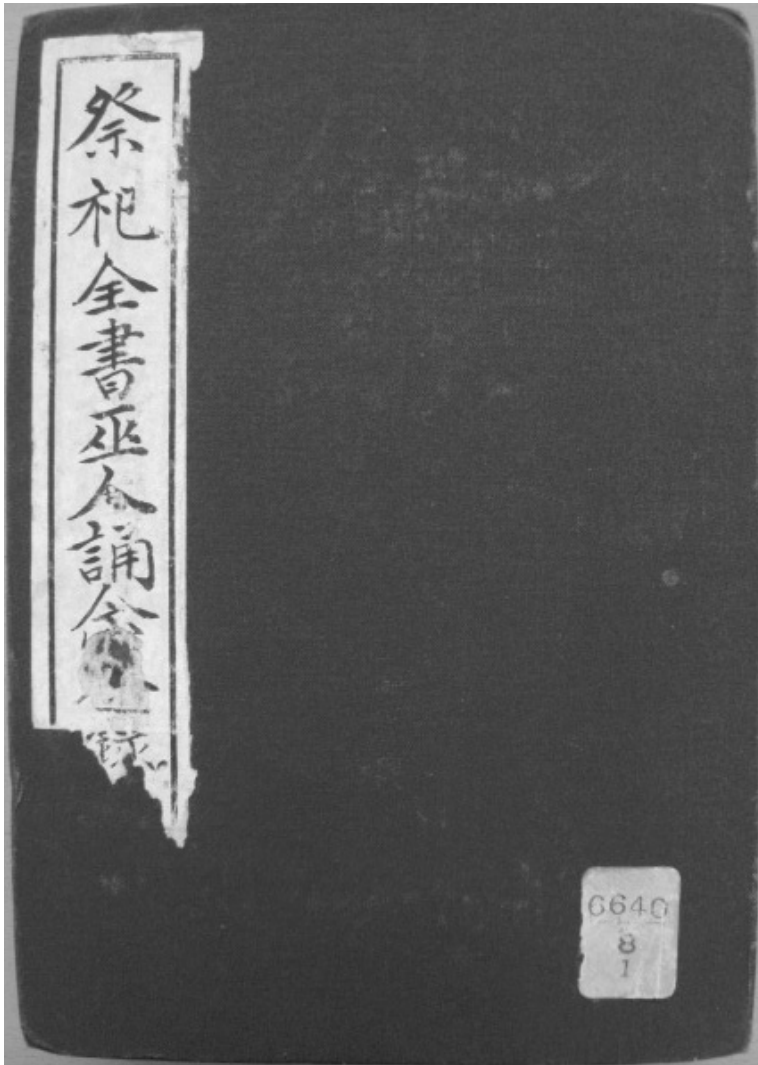 祭祀全書巫人誦念全録
6640
8
1